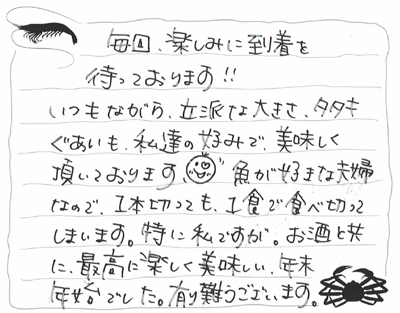 毎回、楽しみに到着を
待っております!!
いつもながら、立派な大きさ、タタキ
ぐあいも、私達の好みで、美味しく
頂いております、魚が好きな夫婦
なので、1本切っても、1食で食べ切って
しまいます。特に私ですが。お酒と共
に、最高に楽しく美味しい、年末
年始でした。有り難うございます。